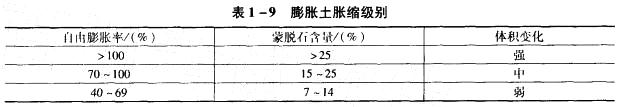 表1-9 膨胀土胀缩级别
自由膨胀率/(%) 蒙脱石含量/(%) 体积变化
>100 >25 强
70~100 15~25 中
40~69 7~14 弱